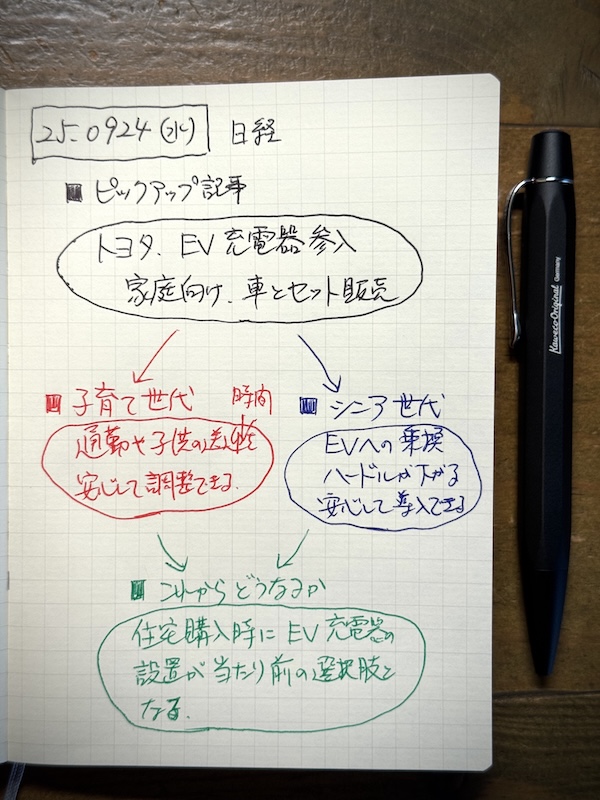 25.0924(水) 日経
■ ピックアップ記事
トヨタ、EV充電器参入
家庭向け、車とセット販売
■ 子育て世代
時間
通勤や子供の送迎を
安心して調整できる.
■ シニア世代
EVへの乗換
ハードルが下がる
安心して導入できる
■ これからどうなるか
住宅購入時にEV充電器の
設置が当たり前の選択肢と
なる.
Kaweco-Original Germany